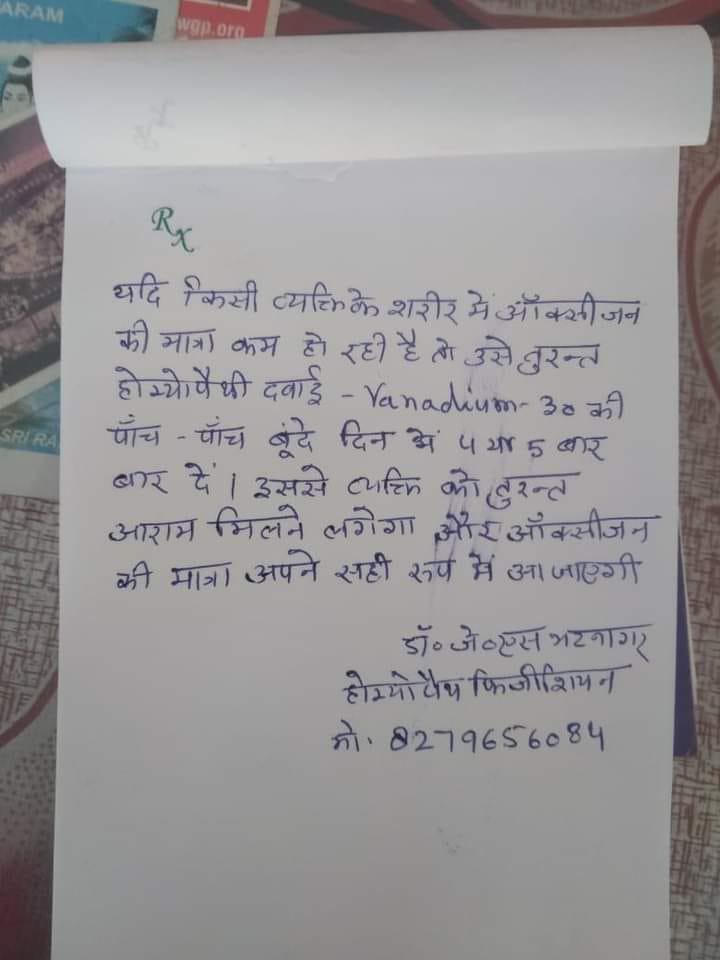 ARAM
wgp.org
SRI RA
Rx
यदि किसी व्यक्ति के शरीर में ऑक्सीजन
की मात्रा कम हो रही है तो उसे तुरन्त
होम्योपैथी दवाई - Vanadium - 30 की
पाँच - पाँच बूंदे दिन में 4 या 5 बार
बार दें । इससे व्यक्ति को तुरन्त
आराम मिलने लगेगा और ऑक्सीजन
की मात्रा अपने सही रुप में आ जाएगी
डॉ० जे० एस भटनागर
होम्योपैथ फिजीशियन
मो. 8279656084